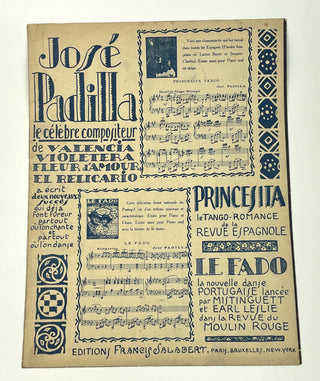 José
Padilla
le célèbre compositeur
de VALENCIA
VIOLETERA
FLEUR d'AMOUR
EL RELICARIO
a écrit
deux nouveaux
succès
qui déjà
font fureur
partout
où l'on chante
et
partout
où l'on danse
Voici une chansonnette qui fait fureur
dans toutes les Espagnes (Paroles françaises
de Lucien Boyer et Jacques-Charles)
Existe aussi pour Piano seul
en tango.
PRINCESITA TANGO
José PADILLA
LE FADO
Cette délicieuse danse nationale du
Portugal est d'un rythme nouveau et
caractéristique. Existe pour Piano et
Chant. Existe aussi pour Piano seul
avec la théorie de la danse.
LE FADO
Allegretto
José PADILLA
PRINCESITA
le TANGO-ROMANCE
de la
REVUE ESPAGNOLE
LE FADO
la nouvelle danse
PORTUGAISE lancée
par MISTINGUETT
et EARL LESLIE
dans la REVUE du
MOULIN ROUGE
EDITIONS FRANCIS SALABERT. PARIS. BRUXELLES. NEW-YORK